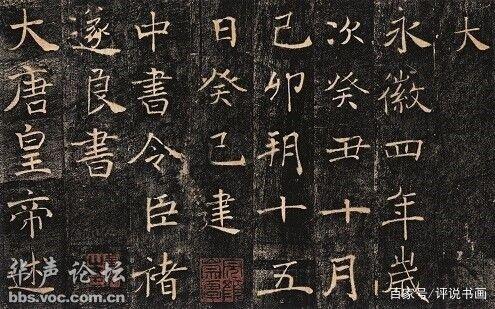 大
永徽四年歲
次癸丑十月
己卯朔十五
日癸巳建
中書令臣褚
遂良書
大唐皇帝述
华声论坛
bbs.voc.com.cn
百家号/评说书画